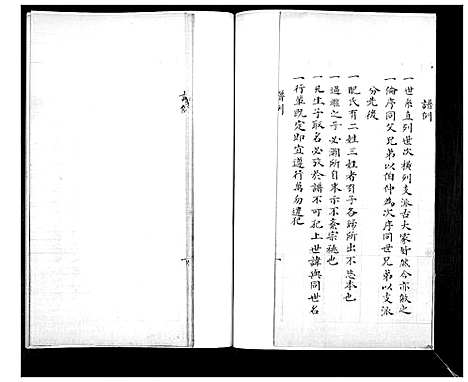 譜例
一世系直列世次橫列支派古大家皆然今亦效之
一倫序同父兄弟以伯仲為次序同世兄弟以支派
分先後
一配氏有二姓三姓者有子各歸所出不忘本也
一過繼之子必溯所自來示不紊宗祧也
一凡生子取名必考於譜不可犯上世諱與同世名
一行輩既定即宜遵行萬勿違犯
譜例